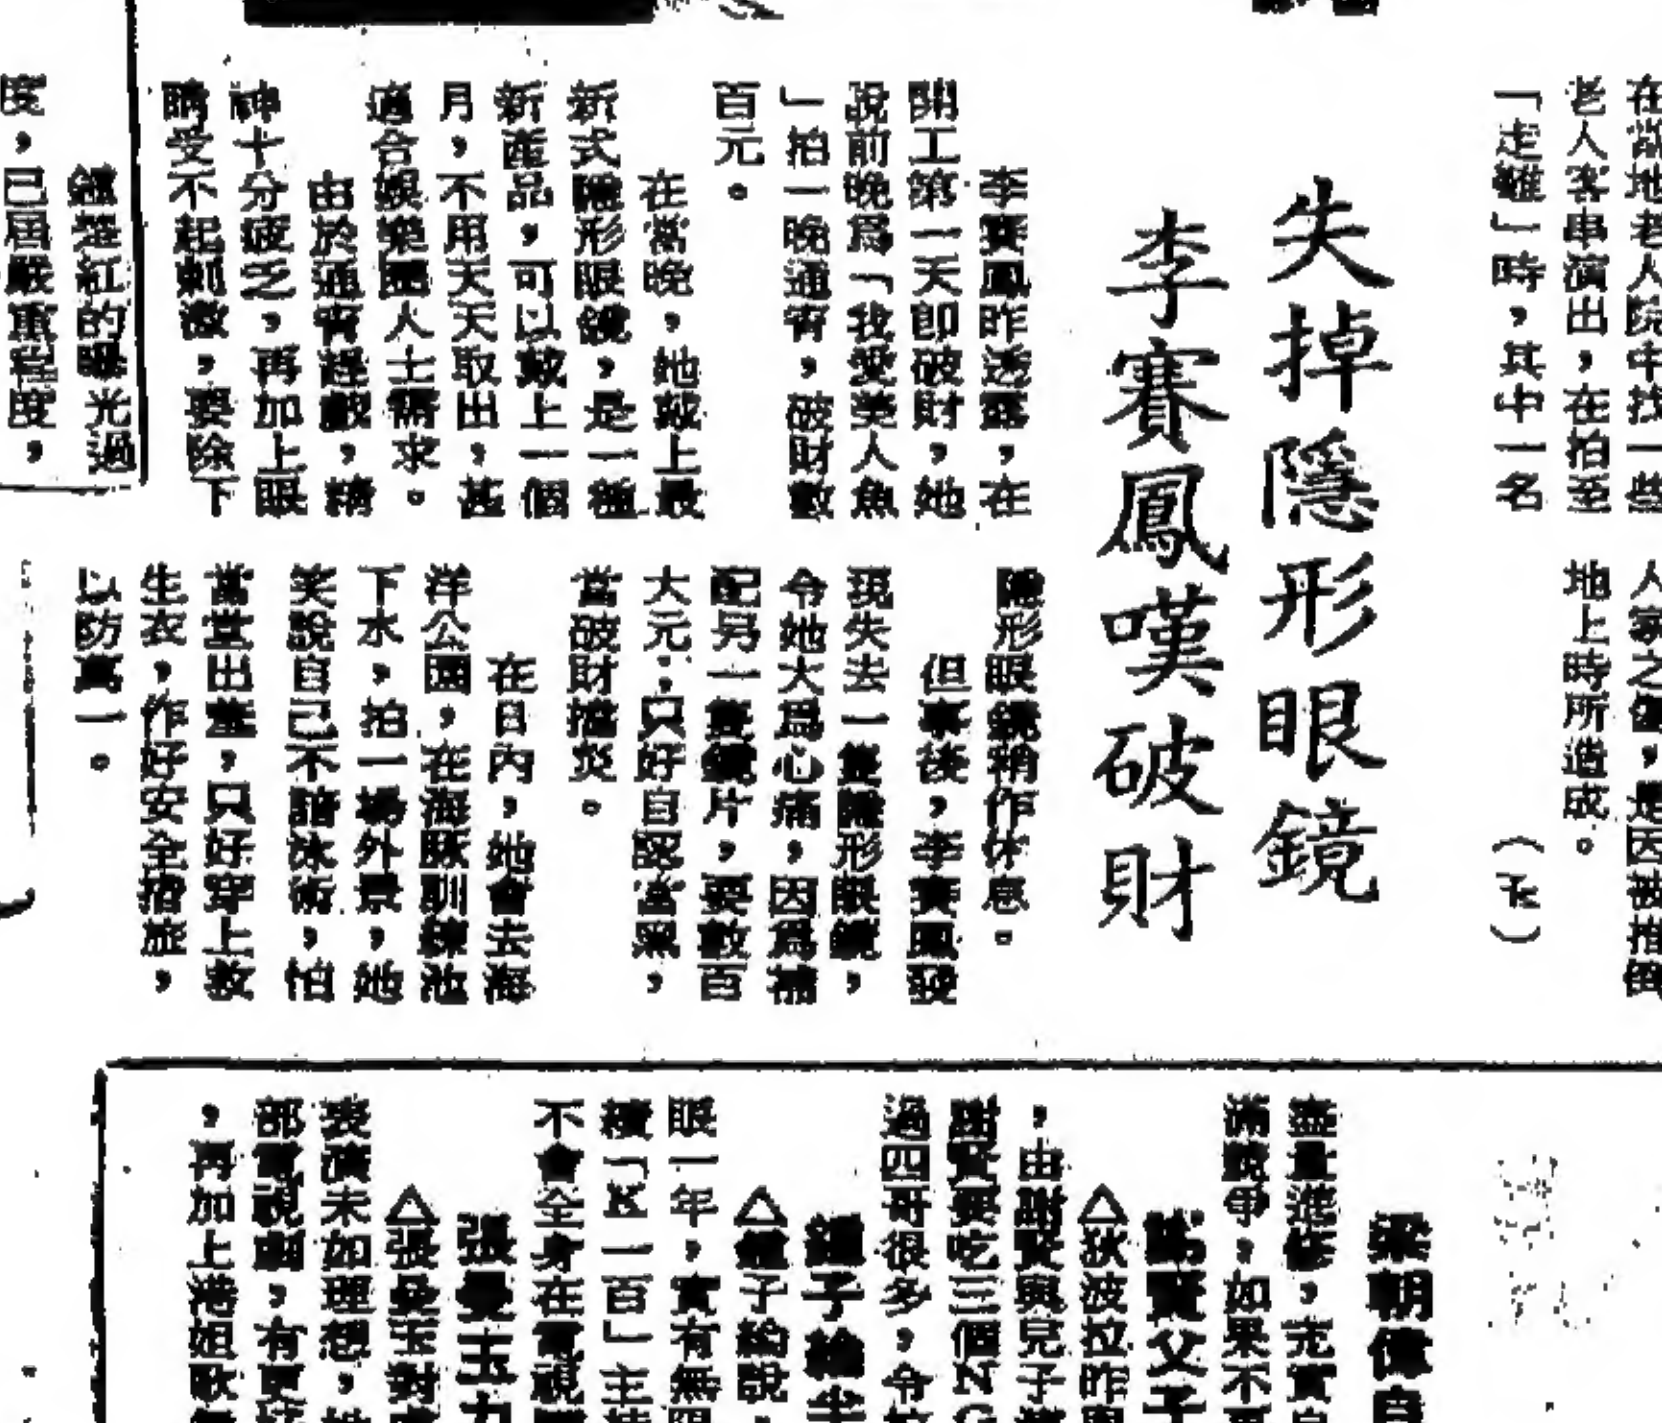 在當地老人院中找一些
老人客串演出，在拍至
「走難」時，其中一名
人家之傷，是因被推倒
地上時所造成。
（玉）
失掉隱形眼鏡
李賽鳳嘆破財
李賽鳳昨透露，在
開工第一天即破財，她
說前晚爲「我愛美人魚
」拍一晚通宵，破財數
百元。
在當晚，她戴上最
新式隱形眼鏡，是一種
新產品，可以戴上一個
月，不用天天取出，甚
適合娛樂圈人士需求。
由於通宵趕戲，精
神十分疲乏，再加上眼
睛受不起刺激，要除下
隱形眼鏡稍作休息。
但事後，李賽鳳發
現失去一隻隱形眼鏡，
令她大爲心痛，因爲補
配另一隻鏡片，要數百
大元，只好自認當黑，
當破財擋災。
在日內，她會去海
洋公園，在海豚訓練池
下水，拍一場外景，她
笑說自己不諳泳術，怕
當堂出醜，只好穿上救
生衣，作好安全措施，
以防萬一。
紅的曝光過
度，已屆嚴重程度，
梁朝偉自
盡量進修，充實自
滿戲爭，如果不再
賢父子
△狄波拉昨與
，由謝賢與兒子
謝賢要吃三個NG
過四哥很多，令
鍾子給半
△鍾子給說，
眼一年，實有無限
積「K一百」主持
不會全身在電視
張曼玉九
△張曼玉對
表演未如理想，她
部電視劇，有更好
，再加上港姐歌舞